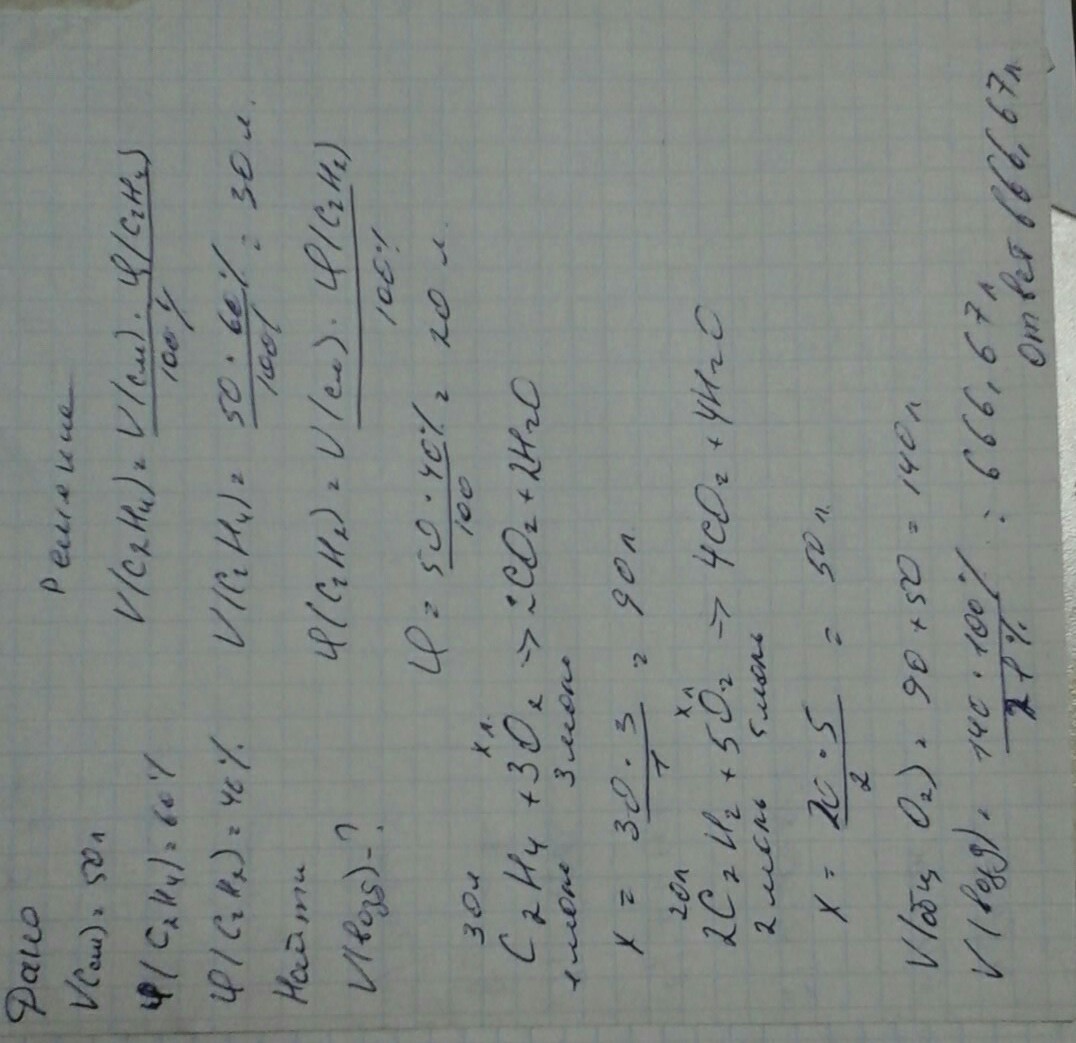 Дано
V(см) = 50 л
φ(C2H4) = 60%
φ(C2H2) = 40%.
Найти
V(возд) - ?
Решение
V(C2H4) = V(см) · φ(C2H4) / 100%
V(C2H4) = 50 · 60% / 100% = 30 л.
φ(C2H2) = V(см) · φ(C2H2) / 100%
φ = 50 · 40% / 100 = 20 л.
30л x л.
C2H4 + 3O2 → 2CO2 + 2H2O
1 моль 3 моль
x = 30 · 3 / 1 = 90 л
20л x л
2C2H2 + 5O2 → 4CO2 + 4H2O
2 моль 5 моль
x = 20 · 5 / 2 = 50 л
V(общ O2) = 90 + 50 = 140 л
V(возд) = 140 · 100% / 21% = 666,67 л
Ответ 666,67 л